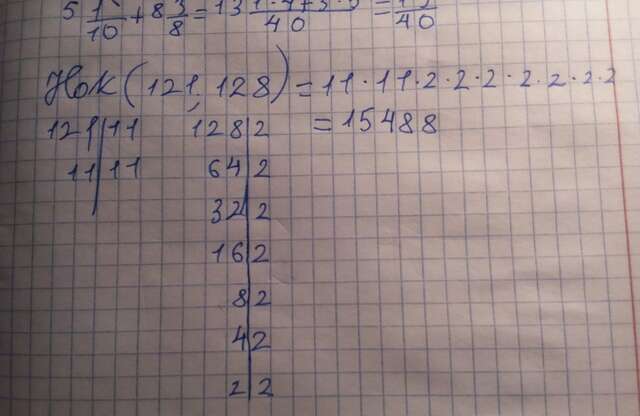 5 1/10 + 8 3/8 = 13
40
40
НОК (121, 128) = 11·11·2·2·2·2·2·2·2
= 15488
121|11 128|2
11|11 64|2
32|2
16|2
8|2
4|2
2|2